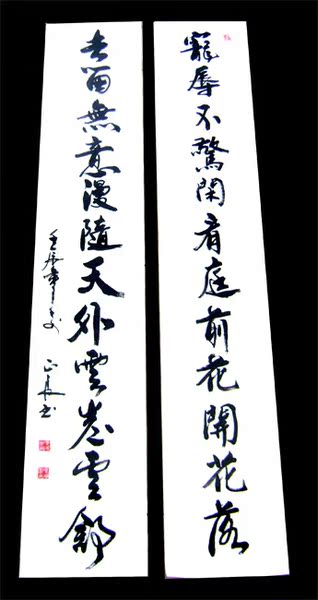 寵辱不驚閑看庭前花開花落
去留無意漫隨天外雲卷雲舒
壬辰年